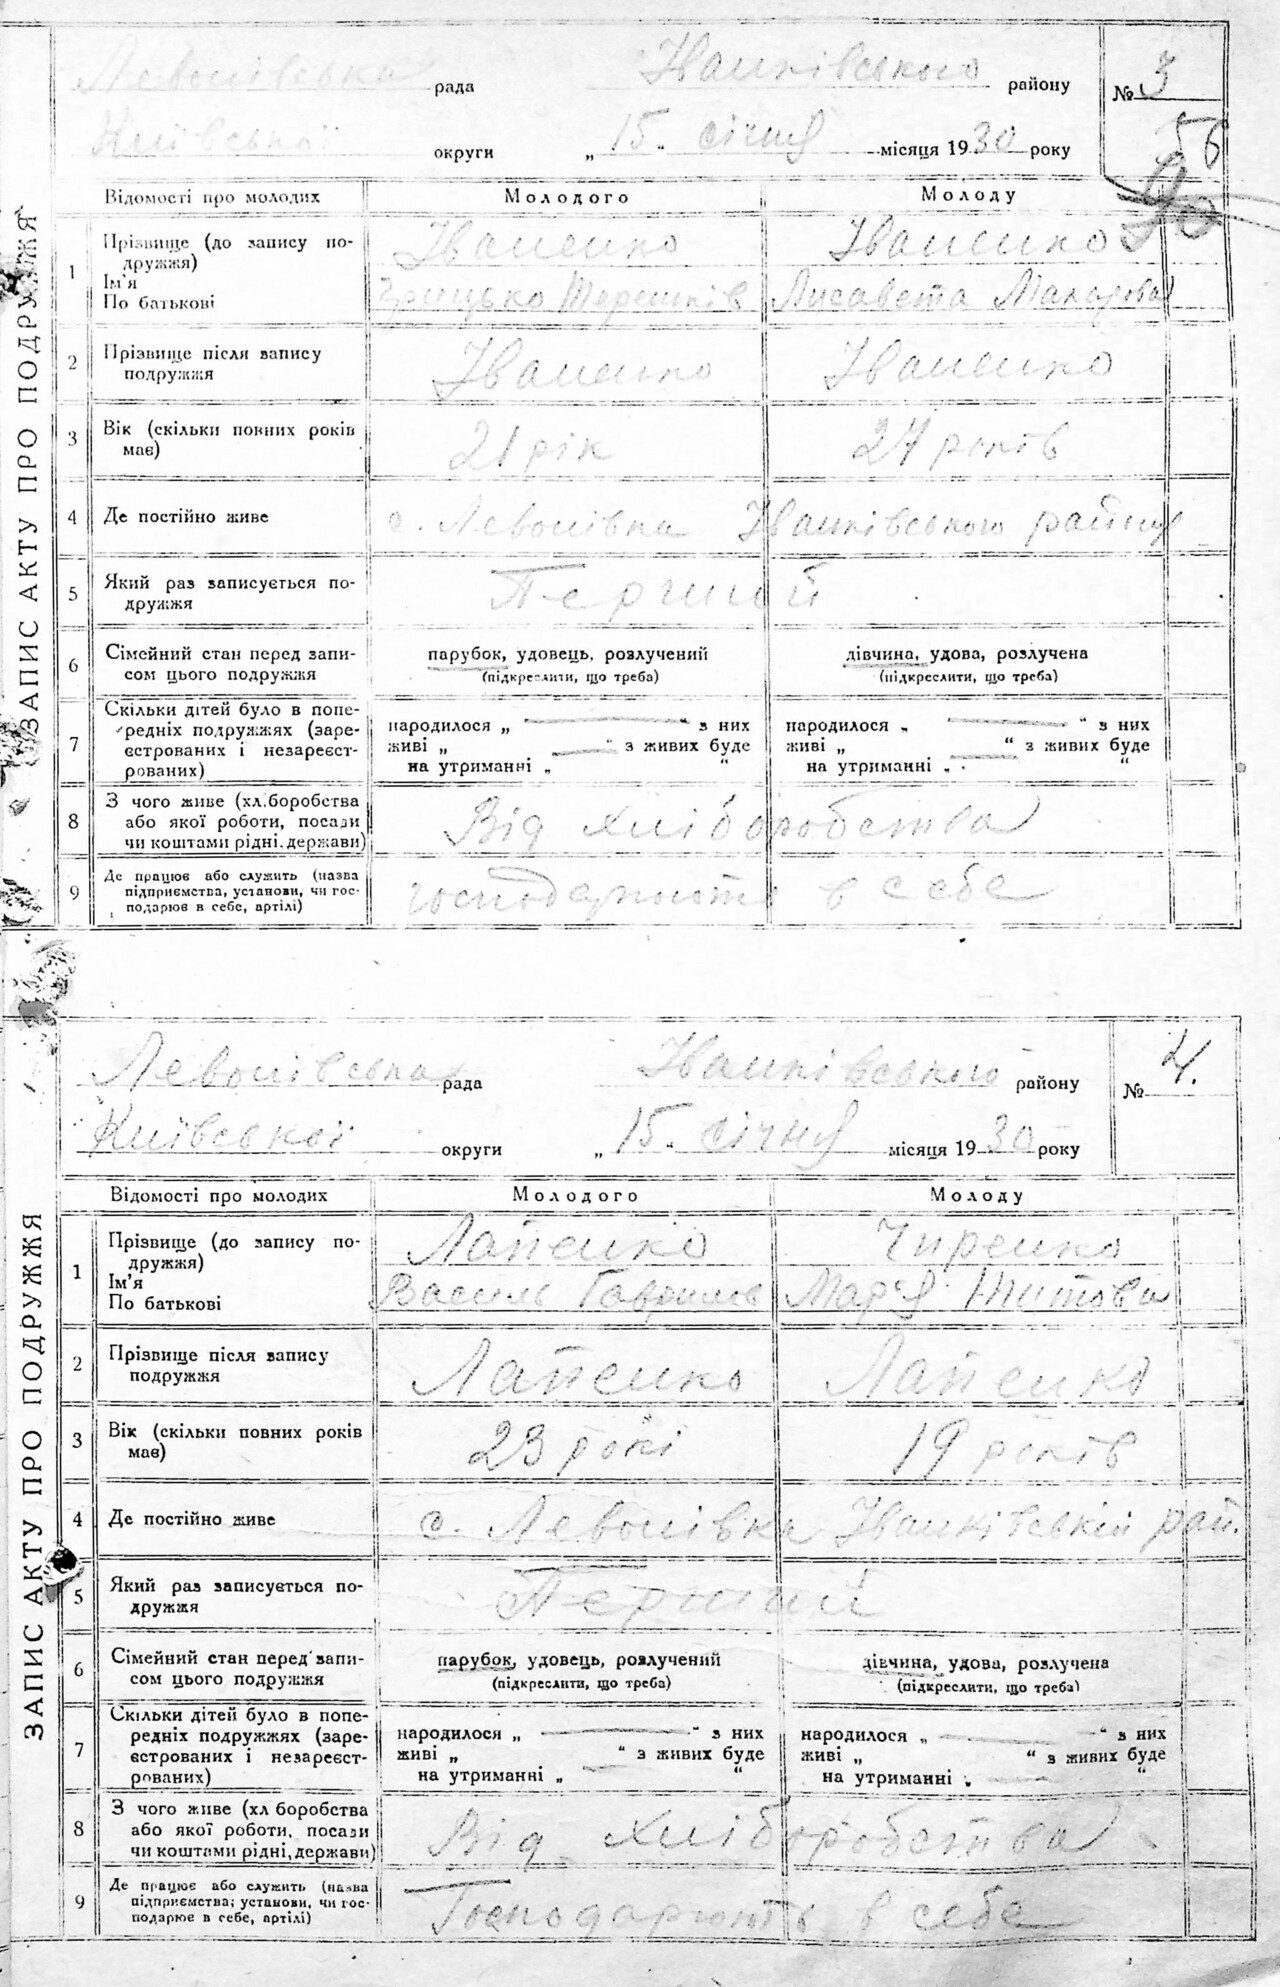 ЗАПИС АКТУ ПРО ПОДРУЖЖЯ
Левонівська рада Іванківського району № 3
Київської округи „15" січня місяця 1930 року 56
Відомості про молодих Молодого Молоду
1 Прізвище (до запису по-
дружжя) Іваненко Іваненко
Ім'я
По батькові Грицько Терешків Лисавета Макарова
2 Прізвище після запису
подружжя Іваненко Іваненко
3 Вік (скільки повних років
має) 21 рік 27 років
4 Де постійно живе с. Левонівка Іванківського району
5 Який раз записується по-
дружжя Перший
6 Сімейний стан перед запи-
сом цього подружжя парубок, удовець, розлучений дівчина, удова, розлучена
(підкреслити, що треба) (підкреслити, що треба)
7 Скільки дітей було в попе-
редніх подружжях (заре-
єстрованих і незареєст-
рованих) народилося „ — " з них народилося „ — " з них
живі „ — " з живих буде живі „ " з живих буде
на утриманні „ " на утриманні „ — "
8 З чого живе (хл.боробства
або якої роботи, посади
чи коштами рідні, держави) Від хліборобства
9 Де працює або служить (назва
підприємства, установи, чи гос-
подарює в себе, артілі) господарюють в себе
ЗАПИС АКТУ ПРО ПОДРУЖЖЯ
Левонівська рада Іванківського району № 4.
Київської округи „15" січня місяця 1930 року
Відомості про молодих Молодого Молоду
1 Прізвище (до запису по-
дружжя) Лапенко Чиренко
Ім'я
По батькові Василь Гаврилів Мар'я Титова
2 Прізвище після запису
подружжя Лапенко Лапенко
3 Вік (скільки повних років
має) 23 рокі 19 років
4 Де постійно живе с. Левонівка Іванківській рай.
5 Який раз записується по-
дружжя Перший
6 Сімейний стан перед запи-
сом цього подружжя парубок, удовець, розлучений дівчина, удова, розлучена
(підкреслити, що треба) (підкреслити, що треба)
7 Скільки дітей було в попе-
редніх подружжях (заре-
єстрованих і незареєст-
рованих) народилося „ — " з них народилося „ — " з них
живі „ — " з живих буде живі „ " з живих буде
на утриманні „ " на утриманні „ — "
8 З чого живе (хл боробства
або якої роботи, посади
чи коштами рідні, держави) Від хліборобства
9 Де працює або служить (назва
підприємства; установи, чи гос-
подарює в себе, артілі) Господарюють в себе